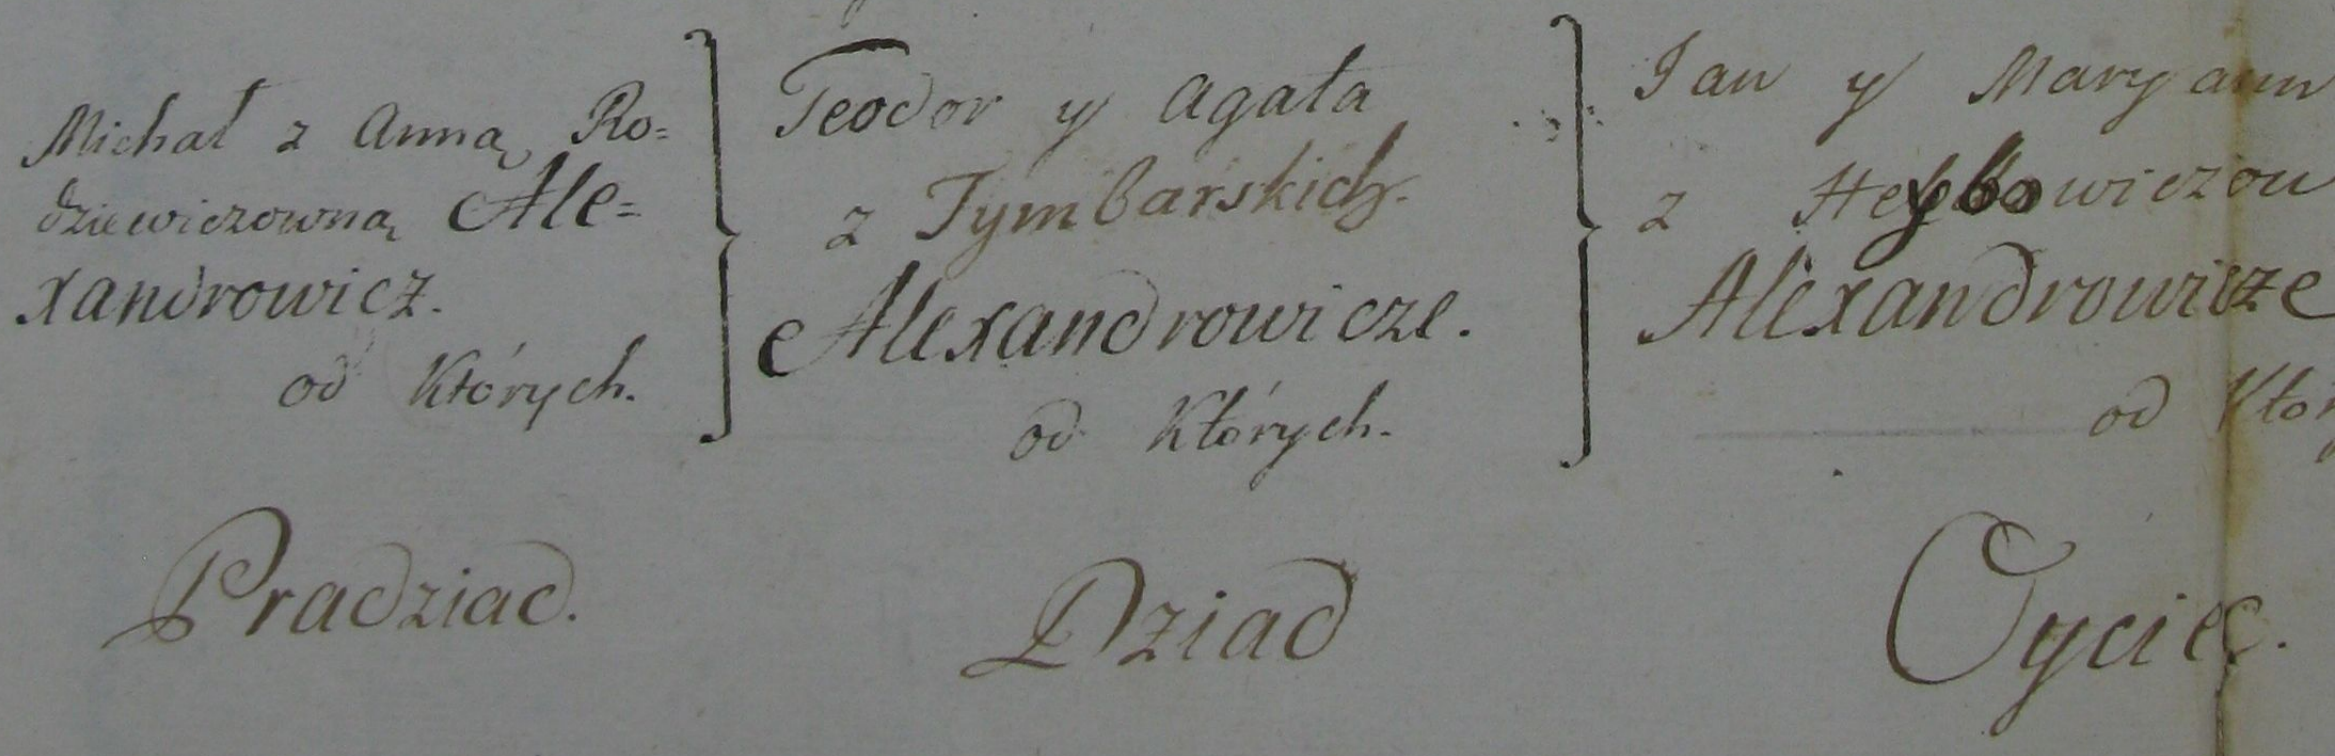 Michał z Anną Ro=
dziewiczowną Ale=
xandrowicz.
od Których.
Pradziad.
Teodor y Agata
z Tymbarskich.
Alexandrowicze.
od Których.
Dziad
Jan y Maryann
z
Alexandrowicze
od Któr
Oyciec.